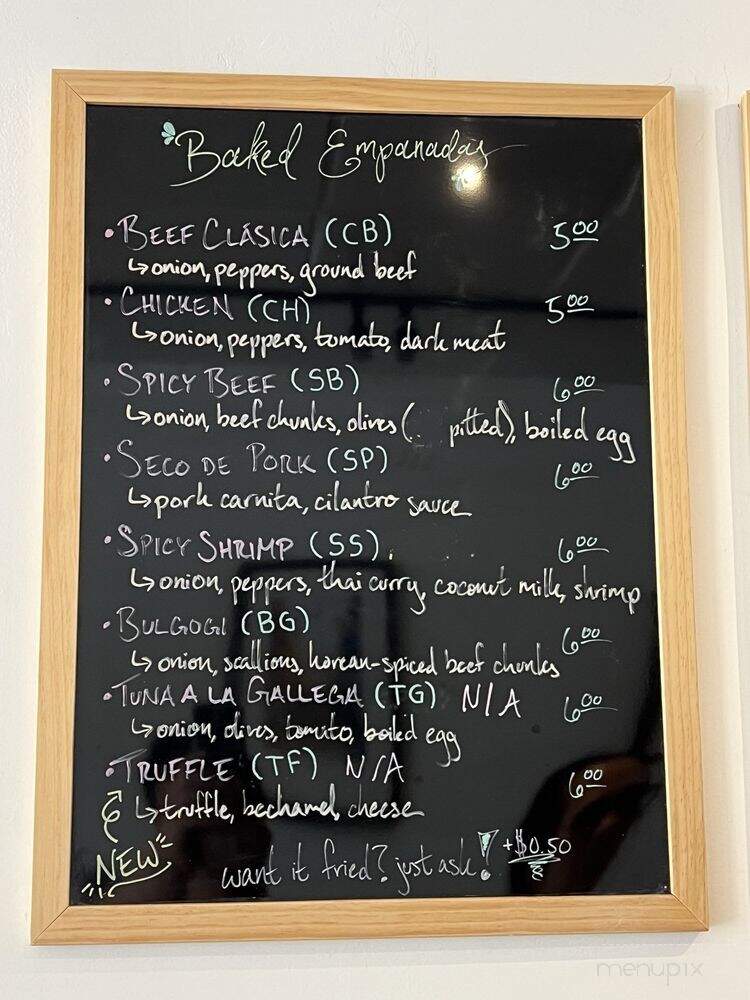 Baked Empanadas
• BEEF CLÁSICA (CB) 5.00
↳onion, peppers, ground beef
• CHICKEN (CH) 5.00
↳onion, peppers, tomato, dark meat
• SPICY BEEF (SB) 6.00
↳onion, beef chunks, olives ( pitted), boiled egg
• SECO DE PORK (SP) 6.00
↳pork carnita, cilantro sauce
• SPICY SHRIMP (SS) 6.00
↳onion, peppers, thai curry, coconut milk, shrimp
• BULGOGI (BG) 6.00
↳onion, scallions, korean-spiced beef chunks
• TUNA A LA GALLEGA (TG) N/A 6.00
↳onion, olives, tomato, boiled egg
• TRUFFLE (TF) N/A 6.00
↳truffle, bechamel, cheese
NEW
want it fried? just ask! +$0.50
menupix